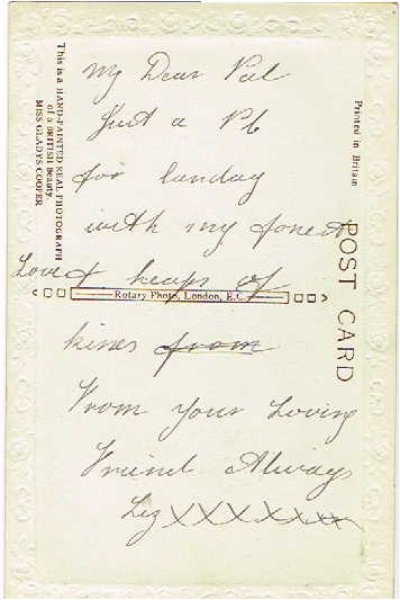 My Dear Pal
Just a P6
for lunday
with my fonest
Love & heaps of
kines from
From your Loving
Friend Always
Liz XXXXXXX
This is a HAND-PAINTED REAL PHOTOGRAPH
of a BRITISH Beauty
MISS GLADYS COOPER
Rotary Photo, London, E.C.
POST CARD
Printed in Britain